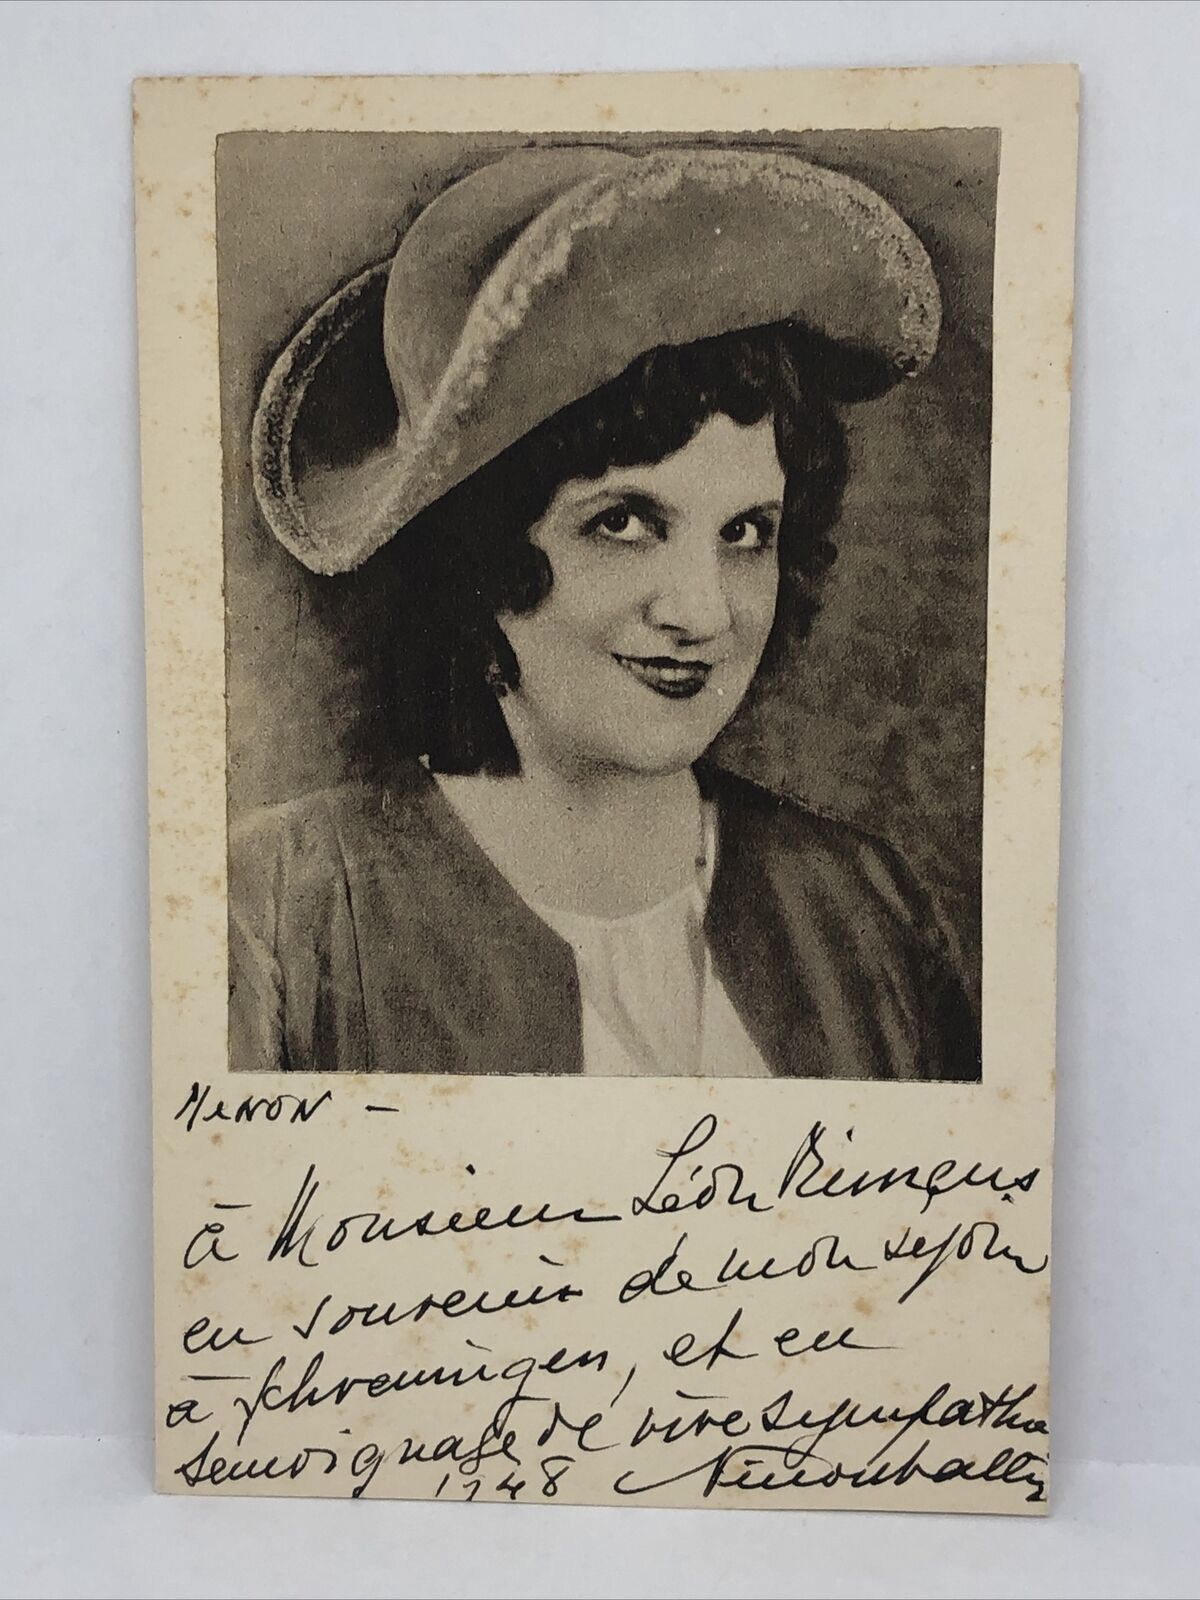 MENON -
à Monsieur Léon
en souvenir de mon séjour
à Schveningen, et en
témoignage de vive sympathie
1948 Ninon Vallin